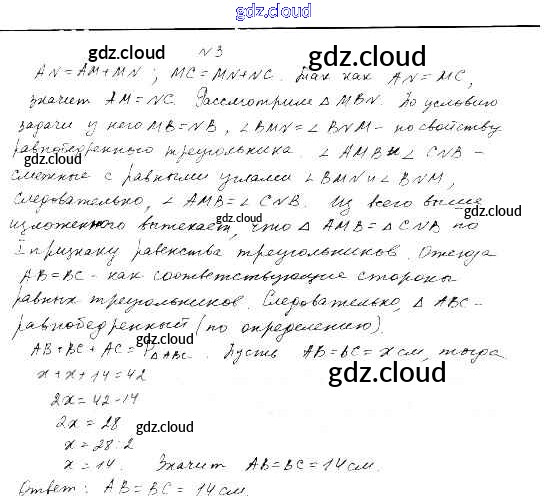 gdz.cloud
N 3
gdz.cloud gdz.cloud
AN = AM + MN ; MC = MN + NC. Так как AN = MC,
значит AM = NC. Рассмотрим △ MBN. По условию
gdz.cloud gdz.cloud
задачи у него MB = NB, ∠ BMN = ∠ BNM - по свойству
равнобедренного треугольника. ∠ AMB и ∠ CNB -
gdz.cloud
смежные с равными углами ∠ BMN и ∠ BNM,
следовательно, ∠ AMB = ∠ CNB. Из всего выше
gdz.cloud gdz.cloud
изложенного вытекает, что △ AMB = △ CNB по
I признаку равенства треугольников. Отсюда
gdz.cloud
AB = BC - как соответствующие стороны
gdz.cloud
равных треугольников. Следовательно, △ ABC -
равнобедренный (по определению).
gdz.cloud
AB + BC + AC = P△ABC. Пусть AB = BC = x см, тогда
gdz.cloud
x + x + 14 = 42
gdz.cloud
2x = 42 - 14
2x = 28
gdz.cloud
x = 28 : 2
x = 14. Значит AB = BC = 14 см.
gdz.cloud
Ответ: AB = BC = 14 см.
gdz.cloud